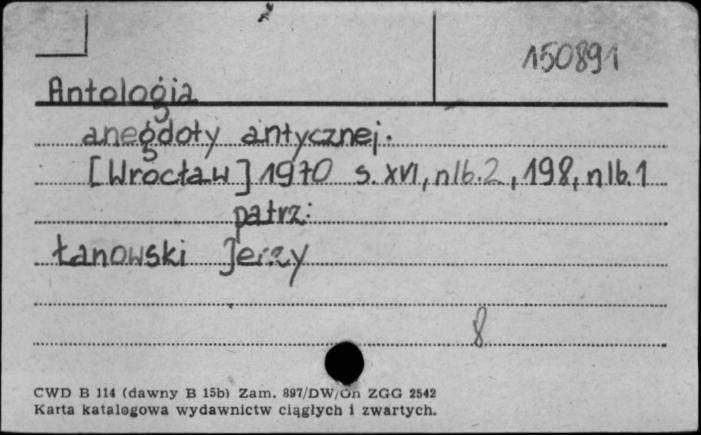 150891
Antologia
anegdoty antycznej.
[Wrocław] 1970 s. XVI, nlb. 2, 198, nlb. 1
patrz:
Łanowski Jerzy
8
CWD B 114 (dawny B 15b) Zam. 897/DW/On ZGG 2542
Karta katalogowa wydawnictw ciągłych i zwartych.